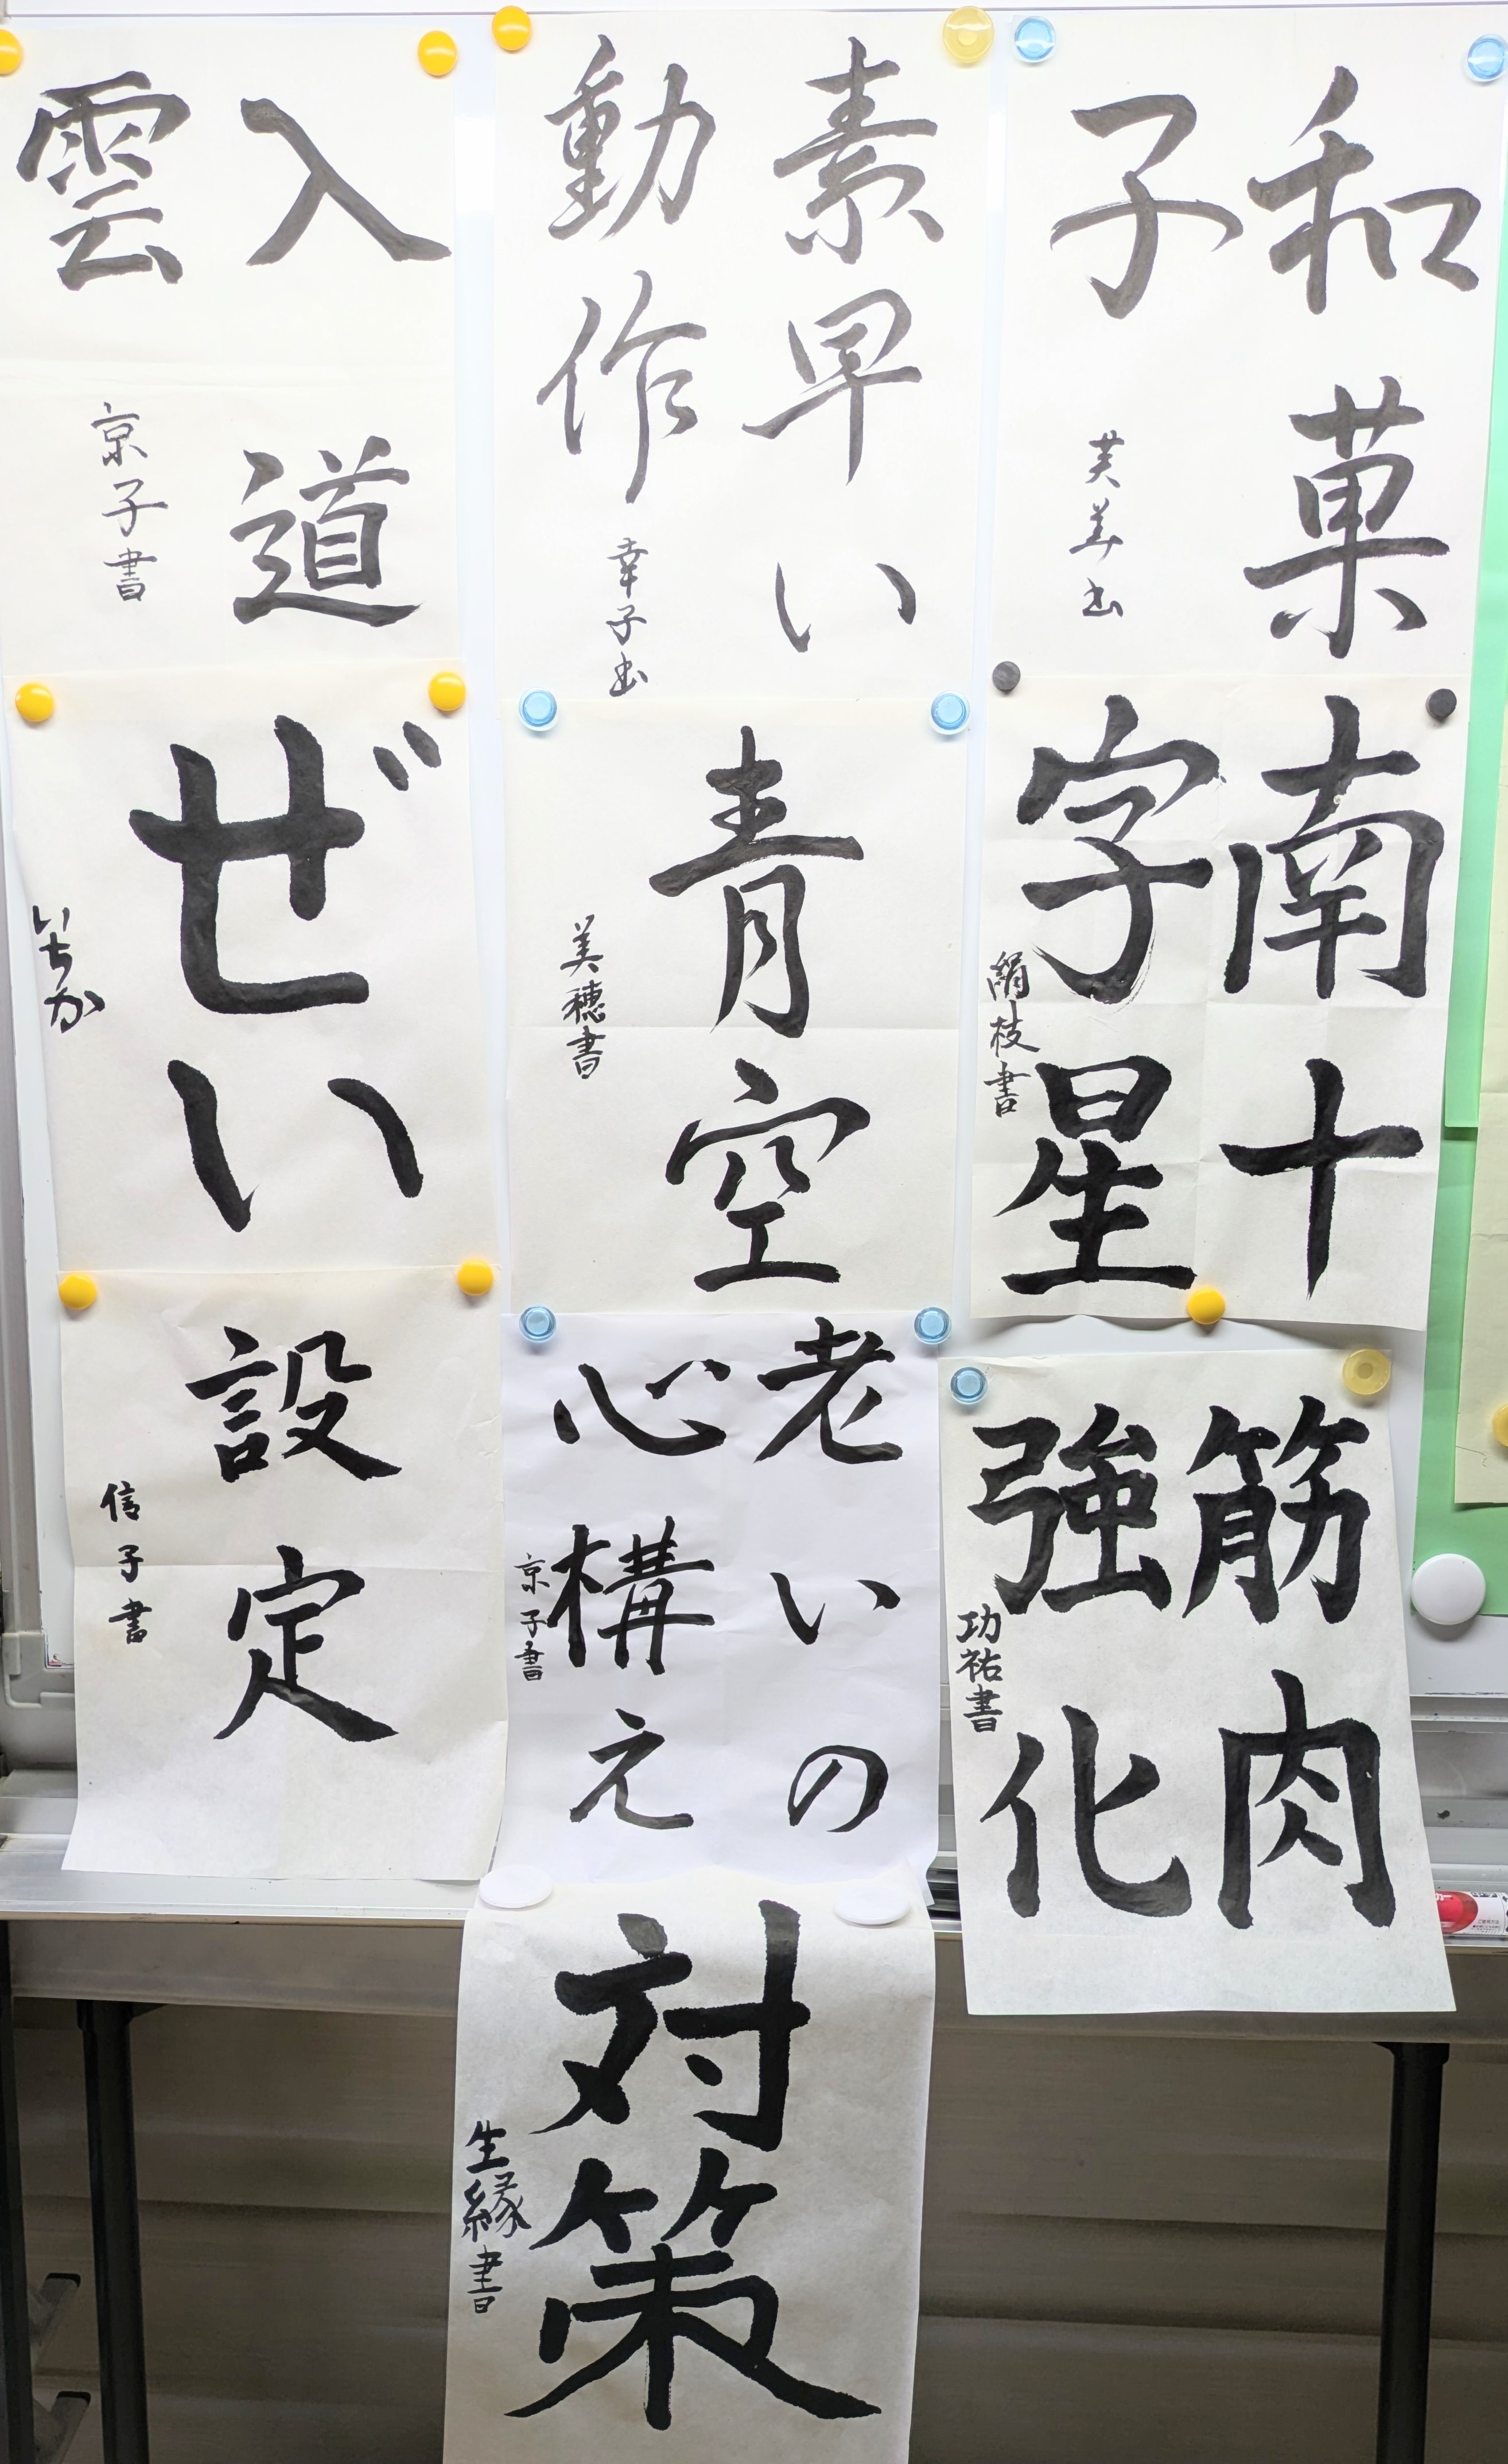 和菓
子
芙美書
素早い
動作
幸子書
入道
雲
京子書
南十
字星
絹枝書
青空
美穂書
ぜい
いちか
筋肉
強化
功祐書
老いの
心構え
京子書
設定
信子書
対策
生縁書